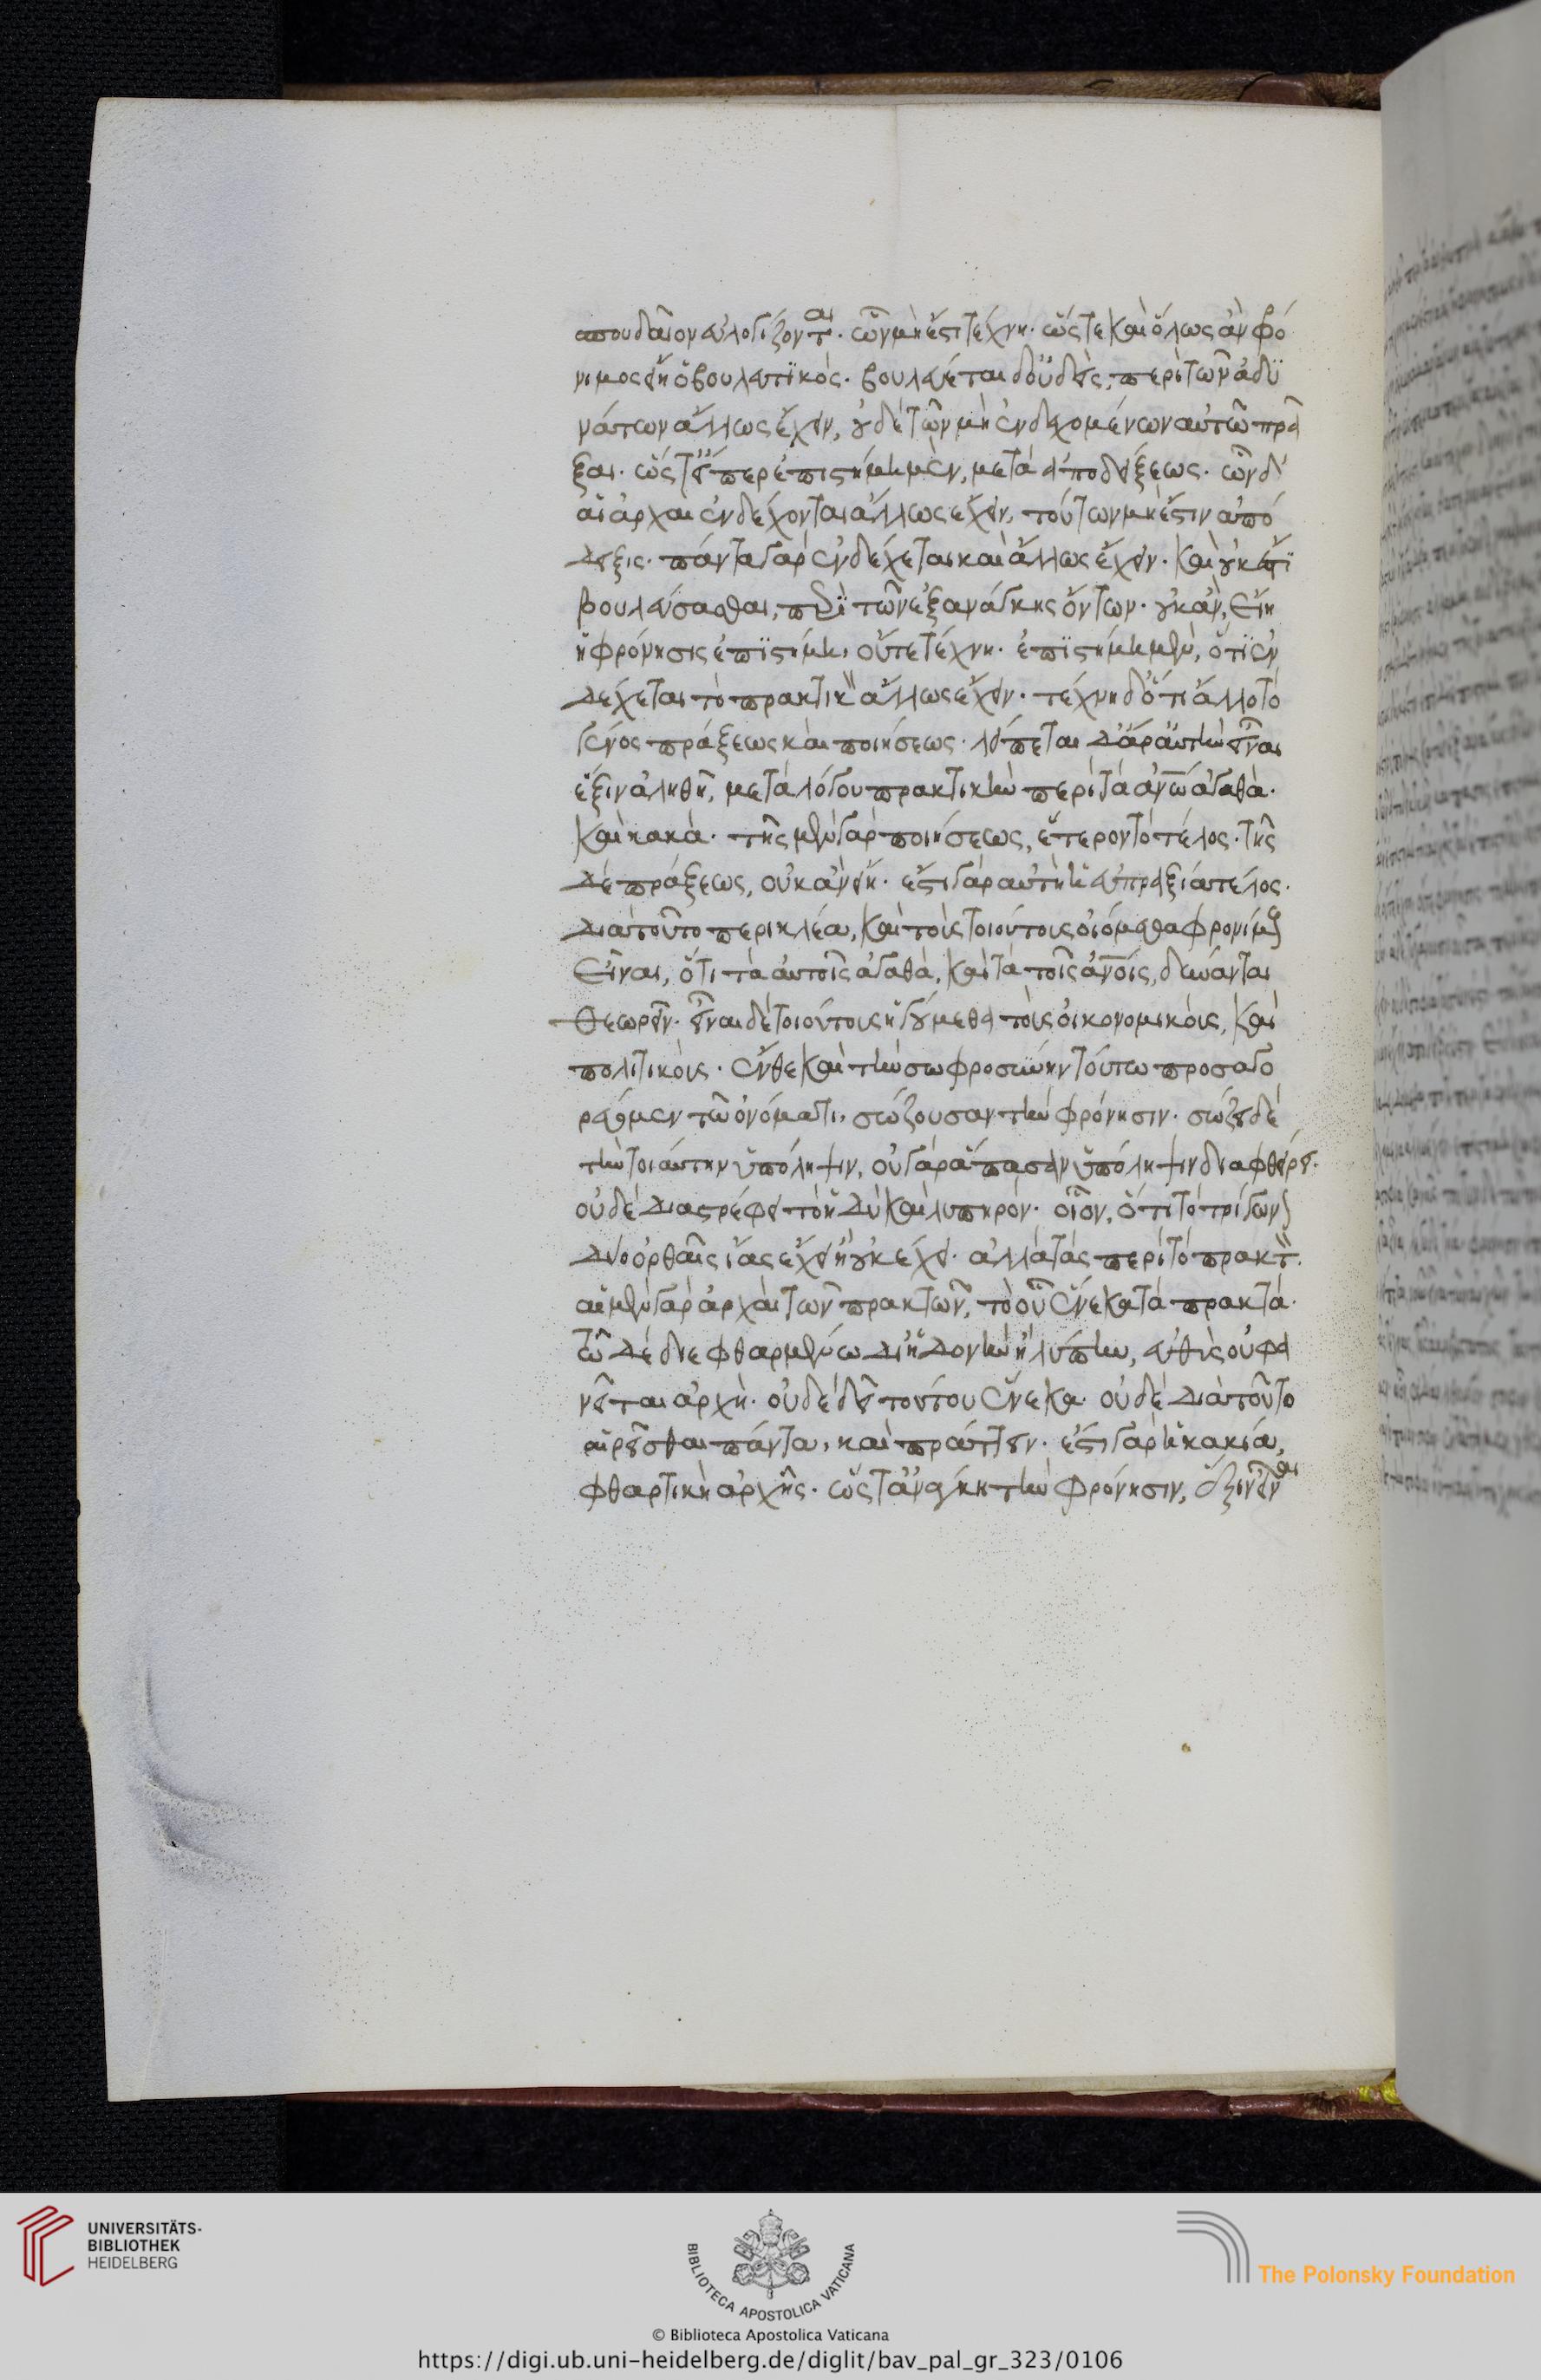 σπουδαῖον εὐλογίζονται. ὧν μή ἐστι τέχνη. ὥστε καὶ ὅλως ἂν φρό
νιμος εἴη ὁ βουλευτικός. βουλεύεται δ' οὐδεὶς, περὶ τῶν ἀδυ
νάτων ἄλλως ἔχειν, οὐδὲ τῶν μὴ ἐνδεχομένων αὐτῶ πρᾶ
ξαι. ὥστ' εἴπερ ἐπιστήμη μὲν, μετὰ ἀποδείξεως. ὧν δ'
αἱ ἀρχαὶ ἐνδέχονται ἄλλως ἔχειν, τούτων μή ἐστιν ἀπό
δειξις. πάντα γὰρ ἐνδέχεται καὶ ἄλλως ἔχειν. καὶ οὐκ ἔστι
βουλεύσασθαι, περὶ τῶν ἐξ ἀνάγκης ὄντων. οὐκ ἂν, εἴη
ἡ φρόνησις ἐπιστήμη, οὔτε τέχνη. ἐπιστήμη μὲν, ὅτι ἐν
δέχεται τὸ πρακτικὸν ἄλλως ἔχειν. τέχνη δ' ὅτι ἄλλο τὸ
γένος πράξεως καὶ ποιήσεως. λείπεται δ' ἄρα αὐτὴν εἶναι
ἕξιν ἀληθῆ, μετὰ λόγου πρακτικὴν περὶ τὰ ἀνω ἀγαθὰ.
καὶ κακά. τῆς μὲν γὰρ ποιήσεως, ἕτερον τὸ τέλος. τῆς
δὲ πράξεως, οὐκ ἂν εἴη. ἔστι γὰρ αὐτὴ ἡ εὐπραξία τέλος.
διὰ τοῦτο περικλέα, καὶ τοὺς τοιούτους οἰόμεθα φρονίμους
εἶναι, ὅτι τὰ αὑτοῖς ἀγαθὰ, καὶ τὰ τοῖς ἀνοις, δύνανται
θεωρεῖν. εἶναι δὲ τοιούτους ἡγούμεθα τοὺς οἰκονομικοὺς, καὶ
πολιτικούς. ἔνθε καὶ τὴν σωφροσύνην τούτω προσαγο
ρεύομεν τῶ ὀνόματι, σώζουσαν τὴν φρόνησιν. σώζει δὲ
τὴν τοιαύτην ὑπόληψιν, οὐ γὰρ ἅπασαν ὑπόληψιν διαφθείρει.
οὐδὲ διαστρέφει τὸ ἡδὺ καὶ λυπηρόν. οἷον, ὅτι τὸ τρίγωνον
δύο ὀρθαῖς ἴσας ἔχει ἢ οὐκ ἔχει. ἀλλὰ τὰς περὶ τὸ πρακτόν.
αἱ μὲν γὰρ ἀρχαὶ τῶν πρακτῶν, τὸ οὗ ἕνεκα τὰ πρακτά.
τῶ δὲ διεφθαρμένω δι' ἡδονὴν ἢ λύπην, εὐθὺς οὐ φα
νεῖται ἀρχή. οὐδὲ δεῖ τούτου ἕνεκα. οὐδὲ διὰ τοῦτο
αἱρεῖσθαι πάντα, καὶ πράττειν. ἔστι γὰρ ἡ κακία,
φθαρτικὴ ἀρχῆς. ὥστ' ἀνάγκη τὴν φρόνησιν, ἕξιν εἶναι
UNIVERSITÄTS-
BIBLIOTHEK
HEIDELBERG
BIBLIOTECA APOSTOLICA VATICANA
The Polonsky Foundation
© Biblioteca Apostolica Vaticana
https://digi.ub.uni-heidelberg.de/diglit/bav_pal_gr_323/0106